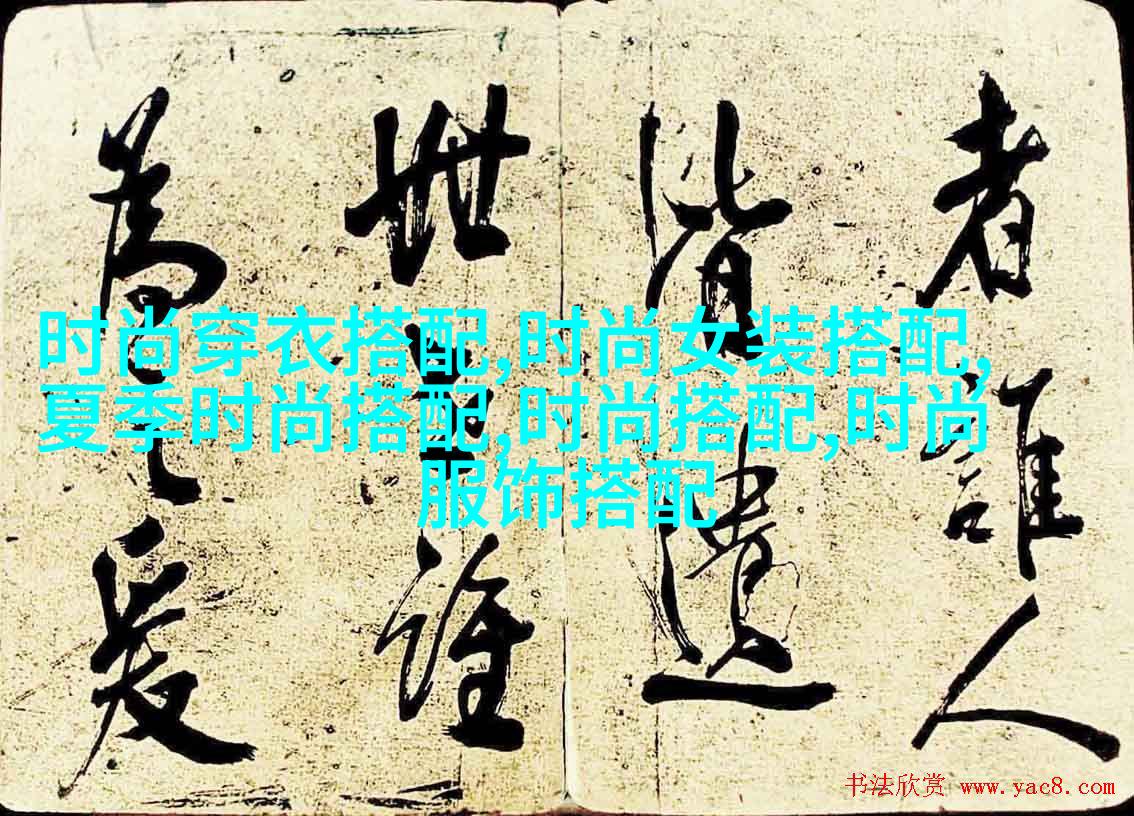 者誰人
皆遺
世誰
為爰
时尚穿衣搭配,时尚女装搭配,
夏季时尚搭配,时尚搭配,时尚
服饰搭配
书法欣赏 www.yac8.com